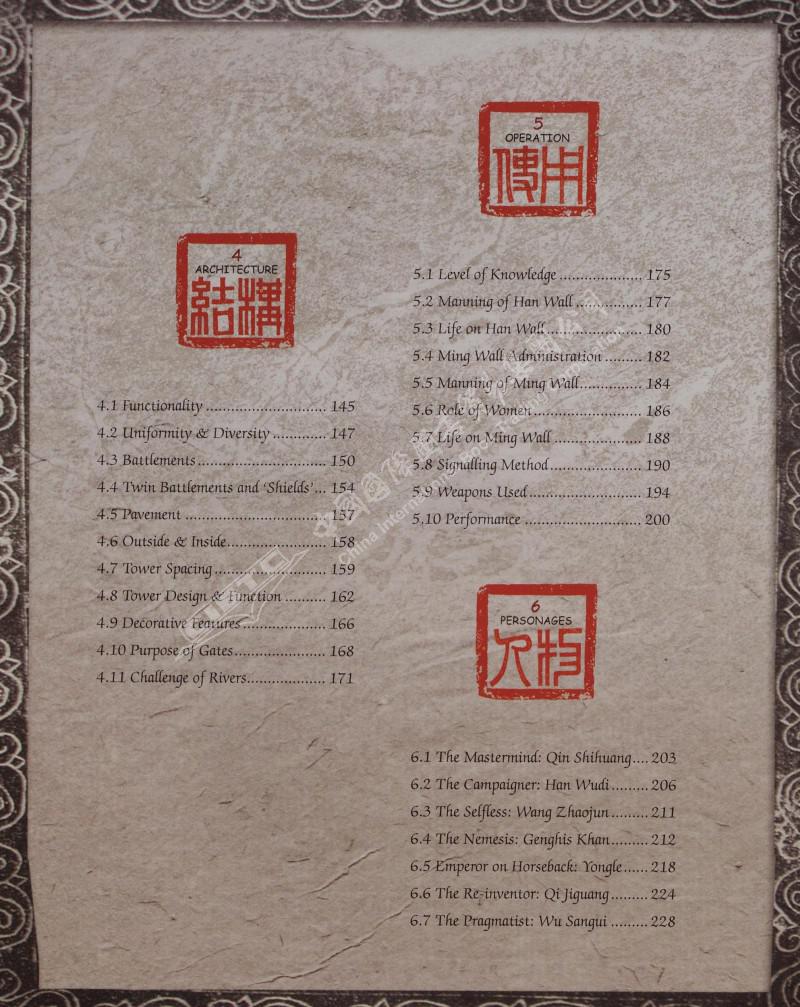 4
ARCHITECTURE
結構
4.1 Functionality ............................. 145
4.2 Uniformity & Diversity ............. 147
4.3 Battlements ...................................... 150
4.4 Twin Battlements and ‘Shields’... 154
4.5 Pavement .................................. 157
4.6 Outside & Inside........................ 158
4.7 Tower Spacing........................... 159
4.8 Tower Design & Function .......... 162
4.9 Decorative Features.................... 166
4.10 Purpose of Gates...................... 168
4.11 Challenge of Rivers................... 171
5
OPERATION
使用
5.1 Level of Knowledge .................... 175
5.2 Manning of Han Wall................ 177
5.3 Life on Han Wall....................... 180
5.4 Ming Wall Administration ......... 182
5.5 Manning of Ming Wall............... 184
5.6 Role of Women .......................... 186
5.7 Life on Ming Wall ..................... 188
5.8 Signalling Method...................... 190
5.9 Weapons Used........................... 194
5.10 Performance ............................ 200
6
PERSONAGES
人物
6.1 The Mastermind: Qin Shihuang.... 203
6.2 The Campaigner: Han Wudi......... 206
6.3 The Selfless: Wang Zhaojun......... 211
6.4 The Nemesis: Genghis Khan......... 212
6.5 Emperor on Horseback: Yongle...... 218
6.6 The Re-inventor: Qi Jiguang......... 224
6.7 The Pragmatist: Wu Sangui ......... 228